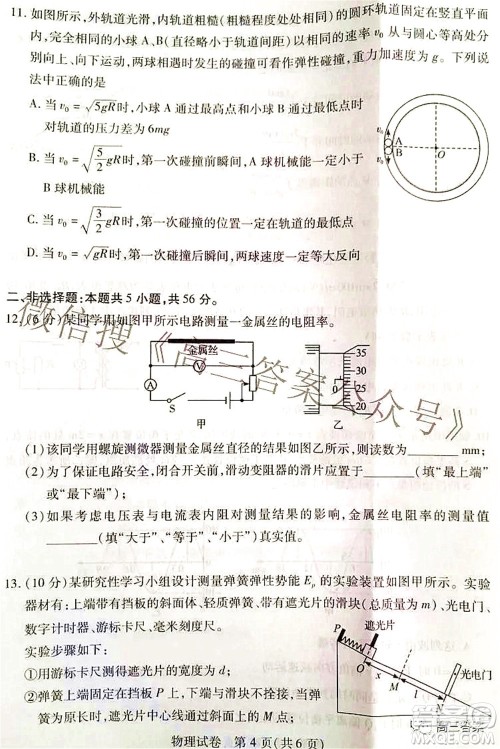 11. 如图所示,外轨道光滑,内轨道粗糙(粗糙程度处处相同)的圆环轨道固定在竖直平面
内,完全相同的小球A、B(直径略小于轨道间距)以相同的速率v₀从与圆心等高处分
别向上、向下运动,两球相遇时发生的碰撞可看作弹性碰撞,重力加速度为g。下列说
法中正确的是
A. 当v₀=√5gR时,小球A通过最高点和小球B通过最低点时
对轨道的压力差为6mg
B. 当v₀=√(5/2 gR)时,第一次碰撞前瞬间,A球机械能一定小于
B球机械能
C. 当v₀=√(3/2 gR)时,第一次碰撞的位置一定在轨道的最低点
D. 当v₀=√gR时,第一次碰撞后瞬间,两球速度一定等大反向
v₀
A
B
v₀
O
二、非选择题:本题共5小题,共56分。
12. (6分)某同学用如图甲所示电路测量一金属丝的电阻率。
金属丝
V
A
S
甲
35
30
25
20
0
乙
(1)该同学用螺旋测微器测量金属丝直径的结果如图乙所示,则读数为 mm;
(2)为了保证电路安全,闭合开关前,滑动变阻器的滑片应置于 (填“最上端”
或“最下端”);
(3)如果考虑电压表与电流表内阻对测量结果的影响,金属丝电阻率的测量值
(填“大于”、“等于”、“小于”)真实值。
13. (10分)某研究性学习小组设计测量弹簧弹性势能Eₚ的实验装置如图甲所示。实验
器材有:上端带有挡板的斜面体、轻质弹簧、带有遮光片的滑块(总质量为m)、光电门、
数字计时器、游标卡尺、毫米刻度尺。
实验步骤如下:
①用游标卡尺测得遮光片的宽度为d;
②弹簧上端固定在挡板P上,下端与滑块不拴接,当弹
簧为原长时,遮光片中心线通过斜面上的
P
遮光片
光电门
O
x
M
l
N
物理试卷 第4页(共6页)
微信搜《高三答案公众号》
高三答案